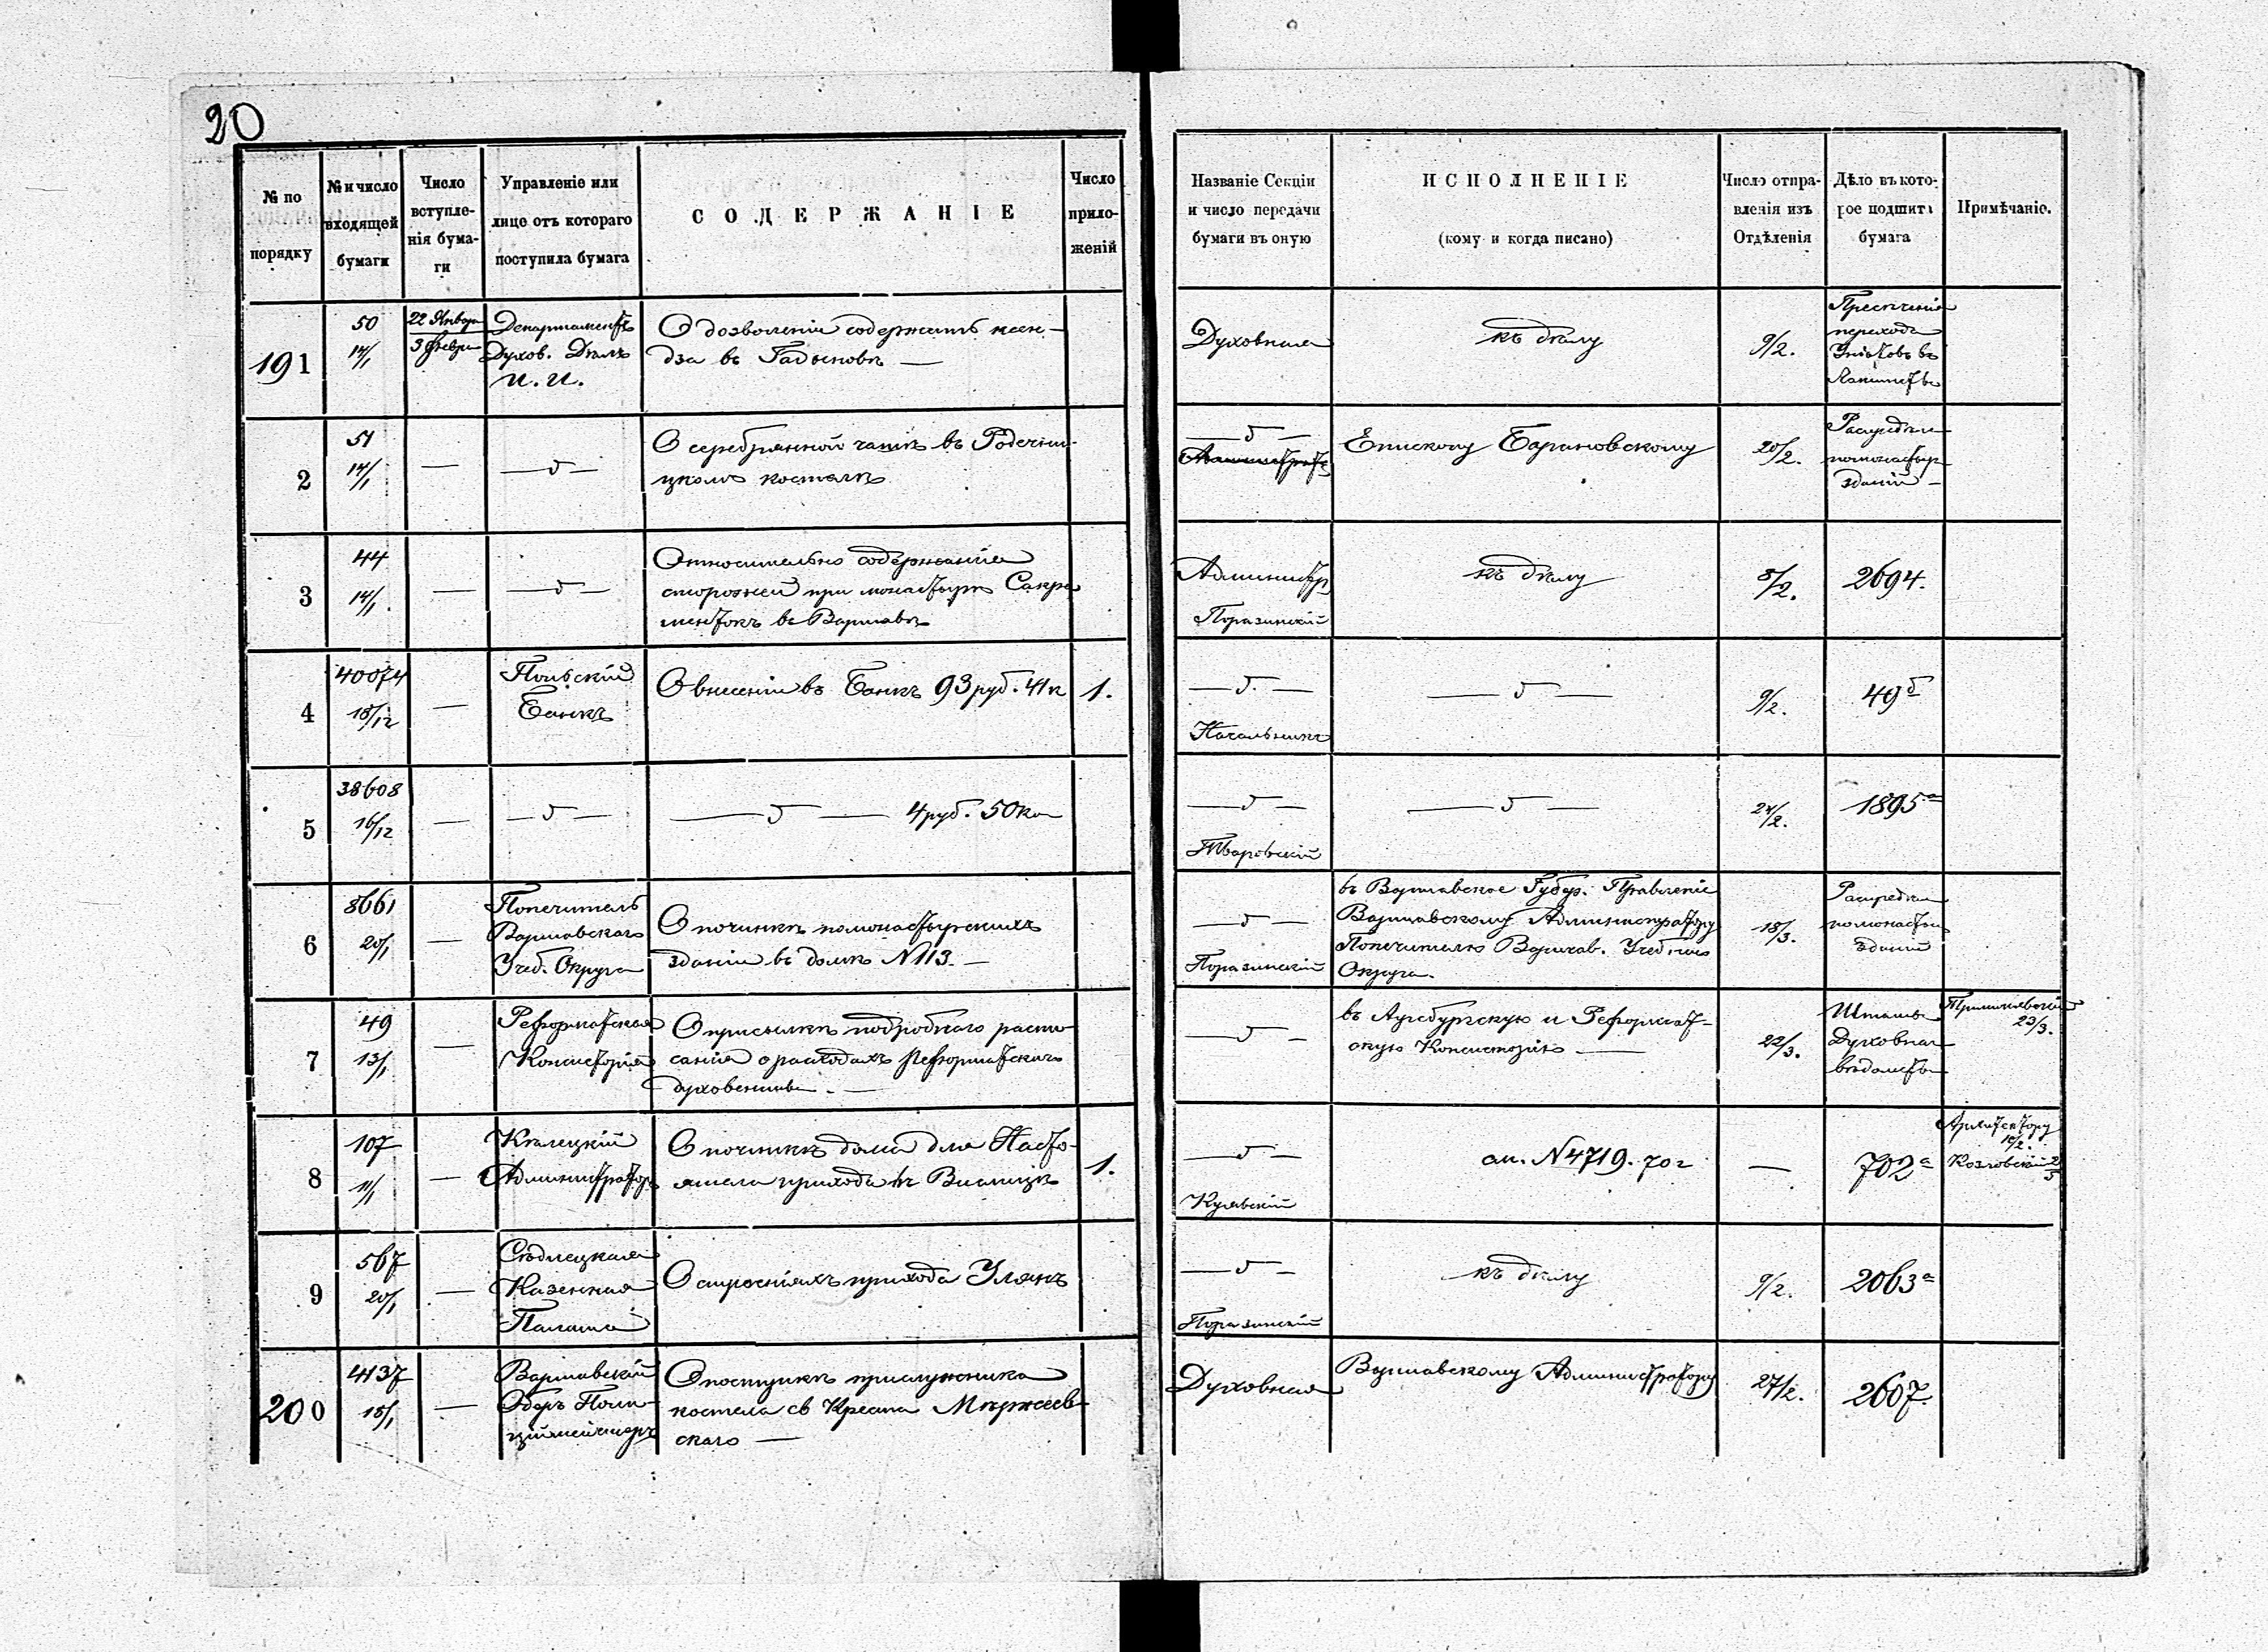 20
№ по порядку
№ и число входящей бумаги
Число вступле-
нія бума-
ги
Управленіе или
лице отъ котораго
поступила бумага
СОДЕРЖАНІЕ
Число
прило-
женій
Названіе Секціи
и число передачи
бумаги въ оную
ИСПОЛНЕНІЕ
(кому и когда писано)
Число отпра-
вленія изъ
Отдѣленія
Дѣло въ кото-
рое подшита
бумага
Примѣчаніе.
191
50
14/1
22 Января
3 Февра
Департаментъ
Духов. Дѣлъ
И. И.
О дозволеніи содержать ксен-
дза въ
Духовная
къ дѣлу
9/2.
Пресѣченіе
перехода
Уніатовъ въ
2
51
14/1
—
— " —
О серебрянной чашѣ въ Радечни-
цкомъ костелѣ
— " —
Епископу Барановскому
20/2.
Распредѣл
помонастыр
зданій —
3
44
14/1.
—
— " —
Относительно содержанія
сторожей при монастырѣ Сакра
ментокъ въ Варшавѣ
Администр
Поразинскій
къ дѣлу
8/2.
2694.
4
40074
18/12
—
Польскій
Банкъ
О внесеніи въ Банкъ 93 руб. 41 к
1.
— " —
Начальникъ
— " —
9/2.
49б
5
38608
16/12
—
— " —
— " — 4 руб. 50 ко
— " —
Тваровскій
— " —
24/2.
1895а
6
8661
20/1
—
Попечитель
Варшавскаго
Учеб. Округа
О починкѣ помонастырскихъ
зданій въ домѣ N 113. —
— " —
Поразинскій
въ Варшавское Губер. Правленіе
Варшавскому Администратору
Попечителю Варшав. Учебнаго
Округа.
18/3.
Распредѣл
помонастыр
зданій
7
49
13/1
—
Реформатская
Консисторія
О присылкѣ подробнаго распи-
санія о расходахъ Реформатскаго
духовенства. —
— " —
въ Аугсбургскую и Реформат-
скую Консисторію —
22/3.
Штаты
Духовнаго
вѣдомства
23/3.
8
107
11/1
—
Кѣлецкій
Администраторъ
О починкѣ дома для Насто-
ятеля прихода въ Вислицѣ
1.
— " —
Куявскій
см. N 4719. 70 г
—
702а
Архитектору
10/2.
Козловскій 2/3
9
567
20/1
—
Сѣдлецкая
Казенная
Палата
О строеніяхъ прихода Улянъ
— " —
Поразинскій
къ дѣлу
9/2.
2063а
200
4137
18/1
—
Варшавскій
Оберъ Поли-
ціймейстеръ
О поступкѣ прислужника
костела св Креста
скаго —
Духовная
Варшавскому Администратору
27/2.
2607.